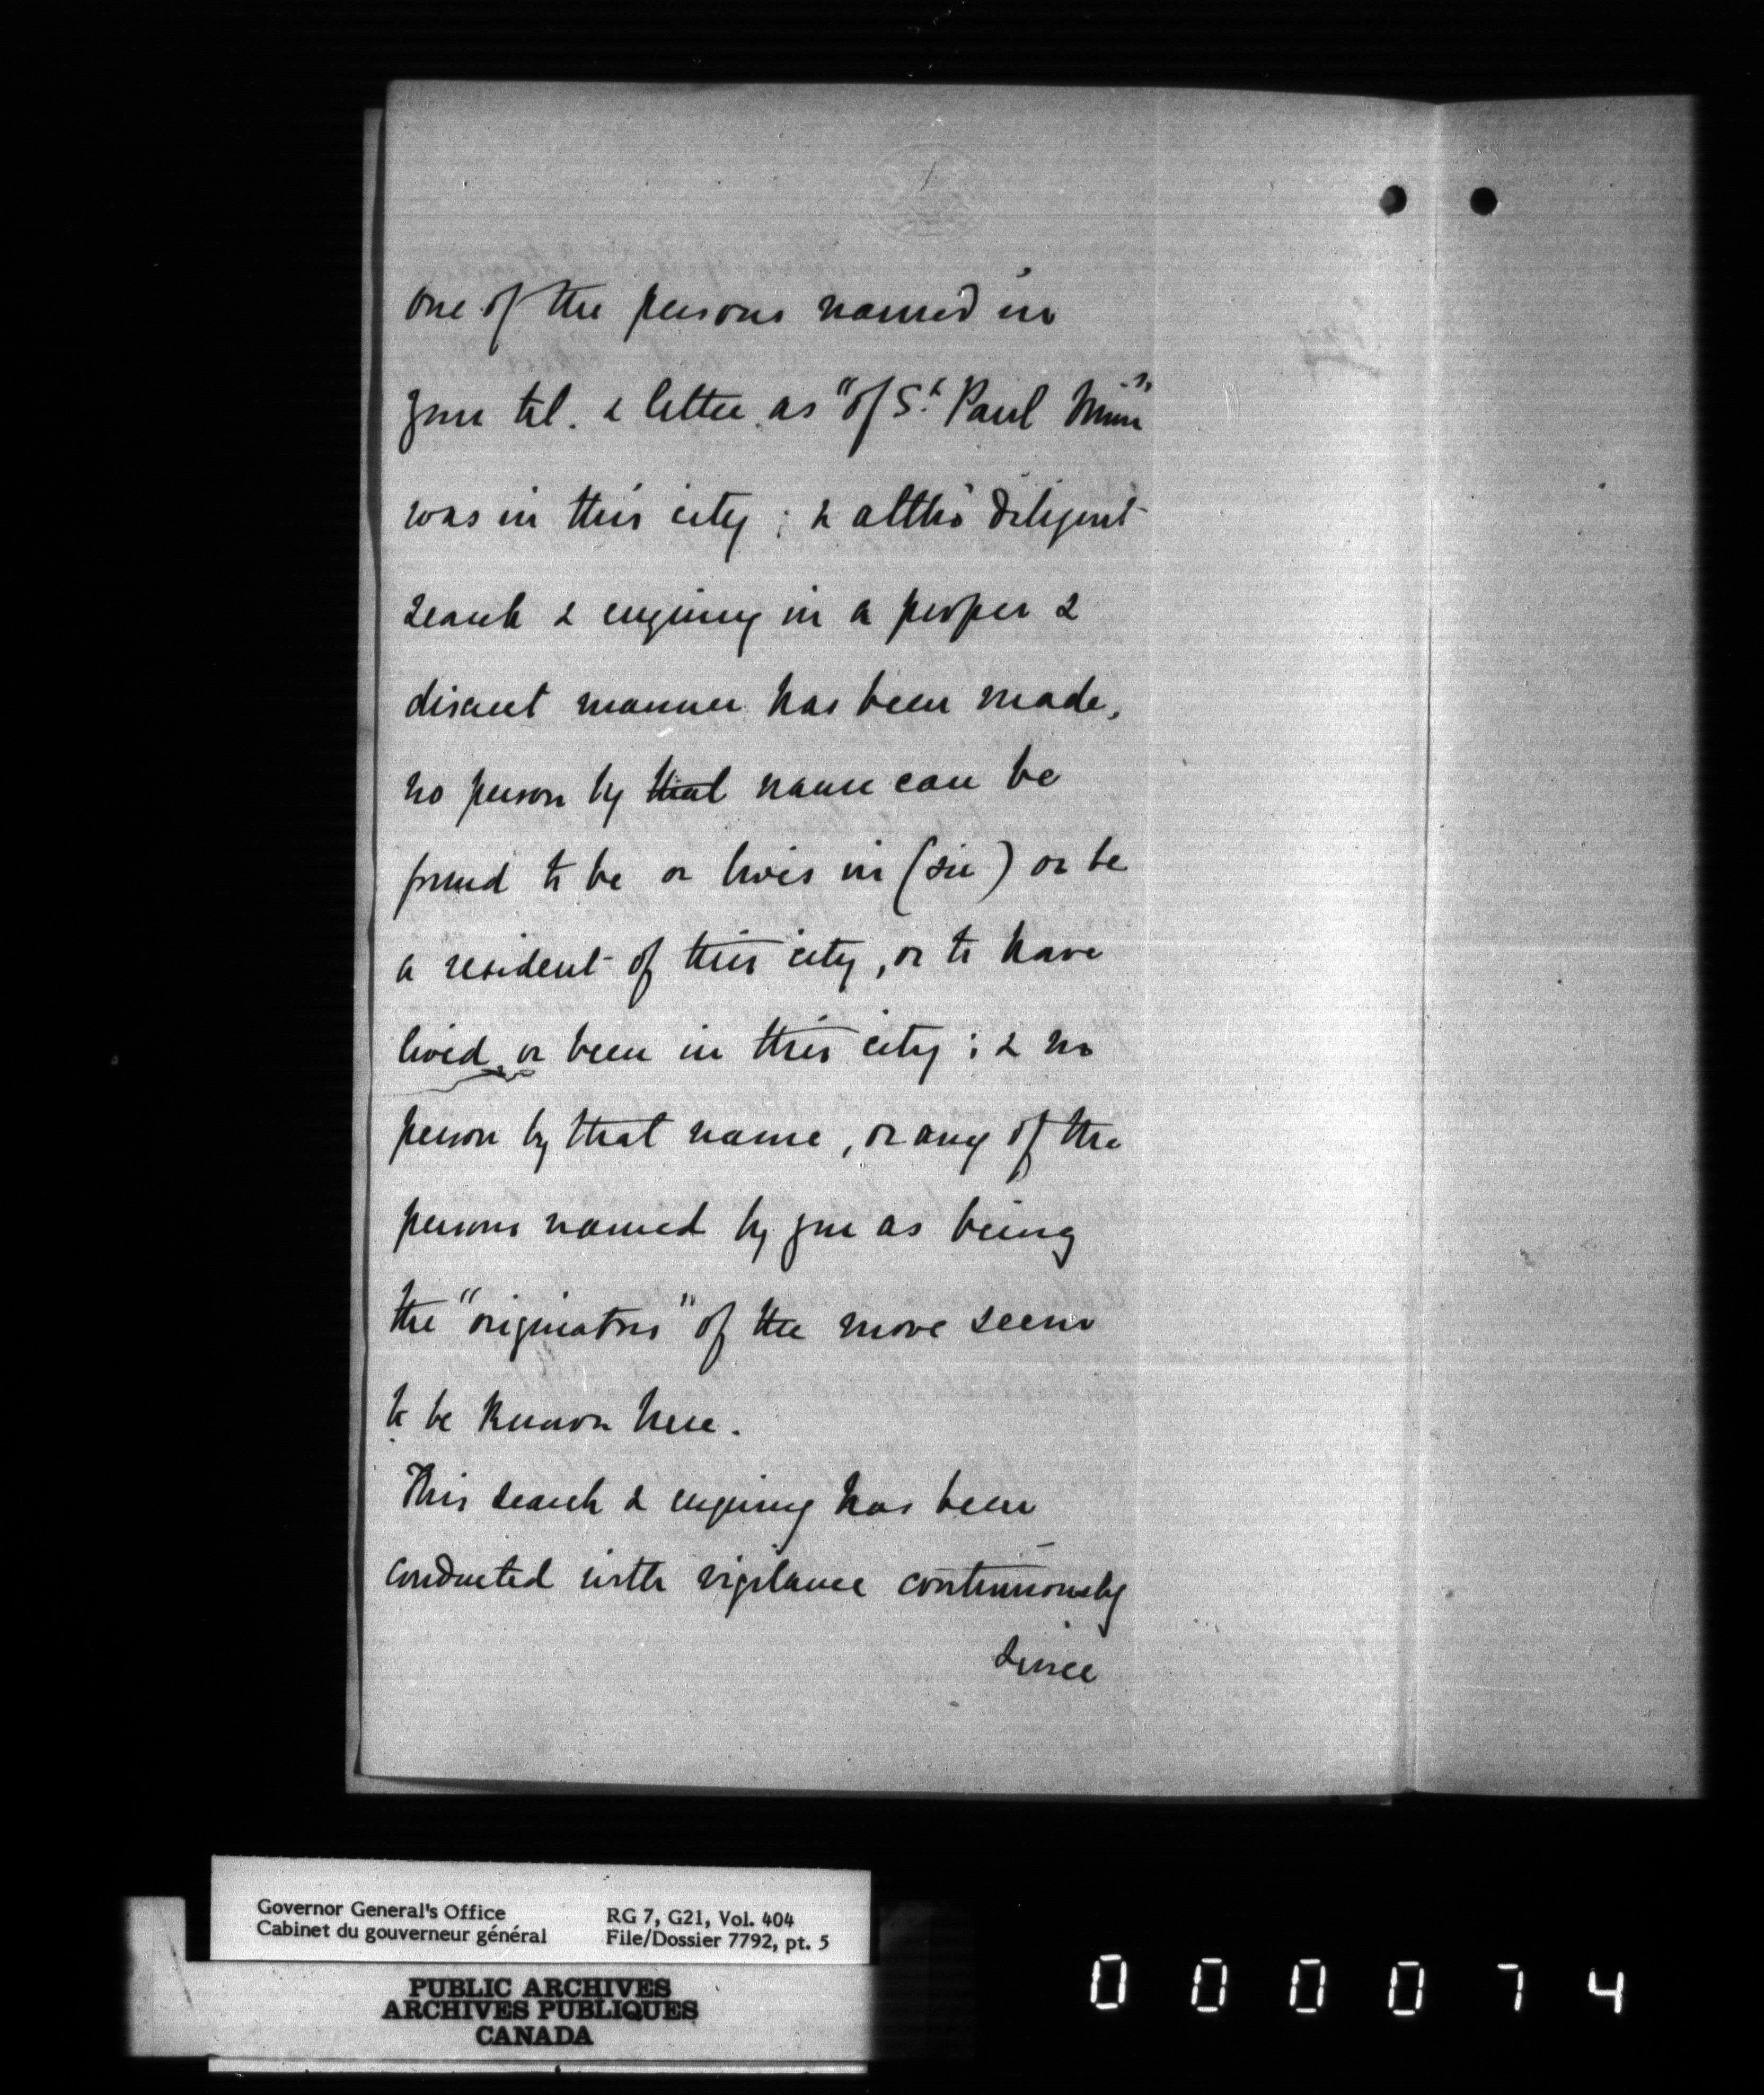 one of the persons named in
your tel. & letter as "of St. Paul Minn"
was in this city; & altho' diligent
search & enquiry in a proper &
discreet manner has been made,
no person by that name can be
found to be or lives in (sic) or be
a resident of this city, or to have
lived, or been in this city; & no
person by that name, or any of the
persons named by you as being
the "originators" of the move seems
to be known here.
This search & enquiry has been
conducted with vigilance continuously
since
Governor General's Office
Cabinet du gouverneur général
RG 7, G21, Vol. 404
File/Dossier 7792, pt. 5
PUBLIC ARCHIVES
ARCHIVES PUBLIQUES
CANADA
000074